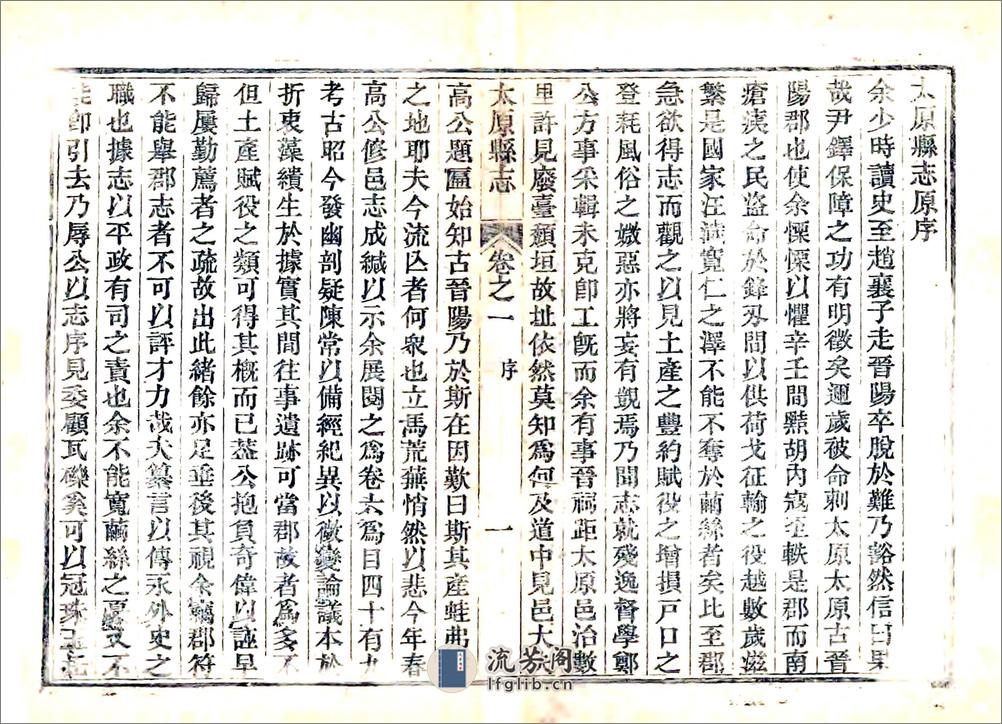 太原縣志原序
余少時讀史至趙襄子走晉陽卒脫於難乃豁然信曰果
哉尹鐸保障之功有明徵矣邇歲被命刺太原太原古晉
陽郡也使余慄慄以懼辛壬間黠胡內寇歪軼是郡而南
瘡痍之民盜命於鋒刃間以供荷戈征輸之役越數歲滋
繁是國家汪濊寬仁之澤不能不奪於繭絲者矣比至郡
急欲得志而觀之以見土產之豐約賦役之增損戶口之
登耗風俗之媺惡亦將妄有覬焉乃聞志就殘逸督學鄭
公方事采輯未克即工旣而余有事晉祠距太原邑治數
里許見廢臺頹垣故址依然莫知為何及道中見邑大夫
太原縣志
卷之一
序
一
高公題匾始知古晉陽乃於斯在因歎曰斯其產蛙
之地耶夫今流亾者何衆也立馬荒蕪悄然以悲今年春
高公修邑志成緘以示余展閱之為卷六為目四十有九
考古昭今發幽剖疑陳常以備經紀異以徵變論議本於
折衷藻繢生於據實其間往事遺跡可當郡故者為多不
但土產賦役之類可得其概而已蓋公抱負奇偉以誣早
歸屢勤薦者之疏故出此緒餘亦足垂後其視余竊郡符
不能舉郡志者不可以評才力哉夫纂言以傳永外史之
職也據志以平政有司之責也余不能寬繭絲之憂又不
能即引去乃辱公以志序見委顧瓦礫奚可以冠珠玉
流芳阁
lfglib.cn